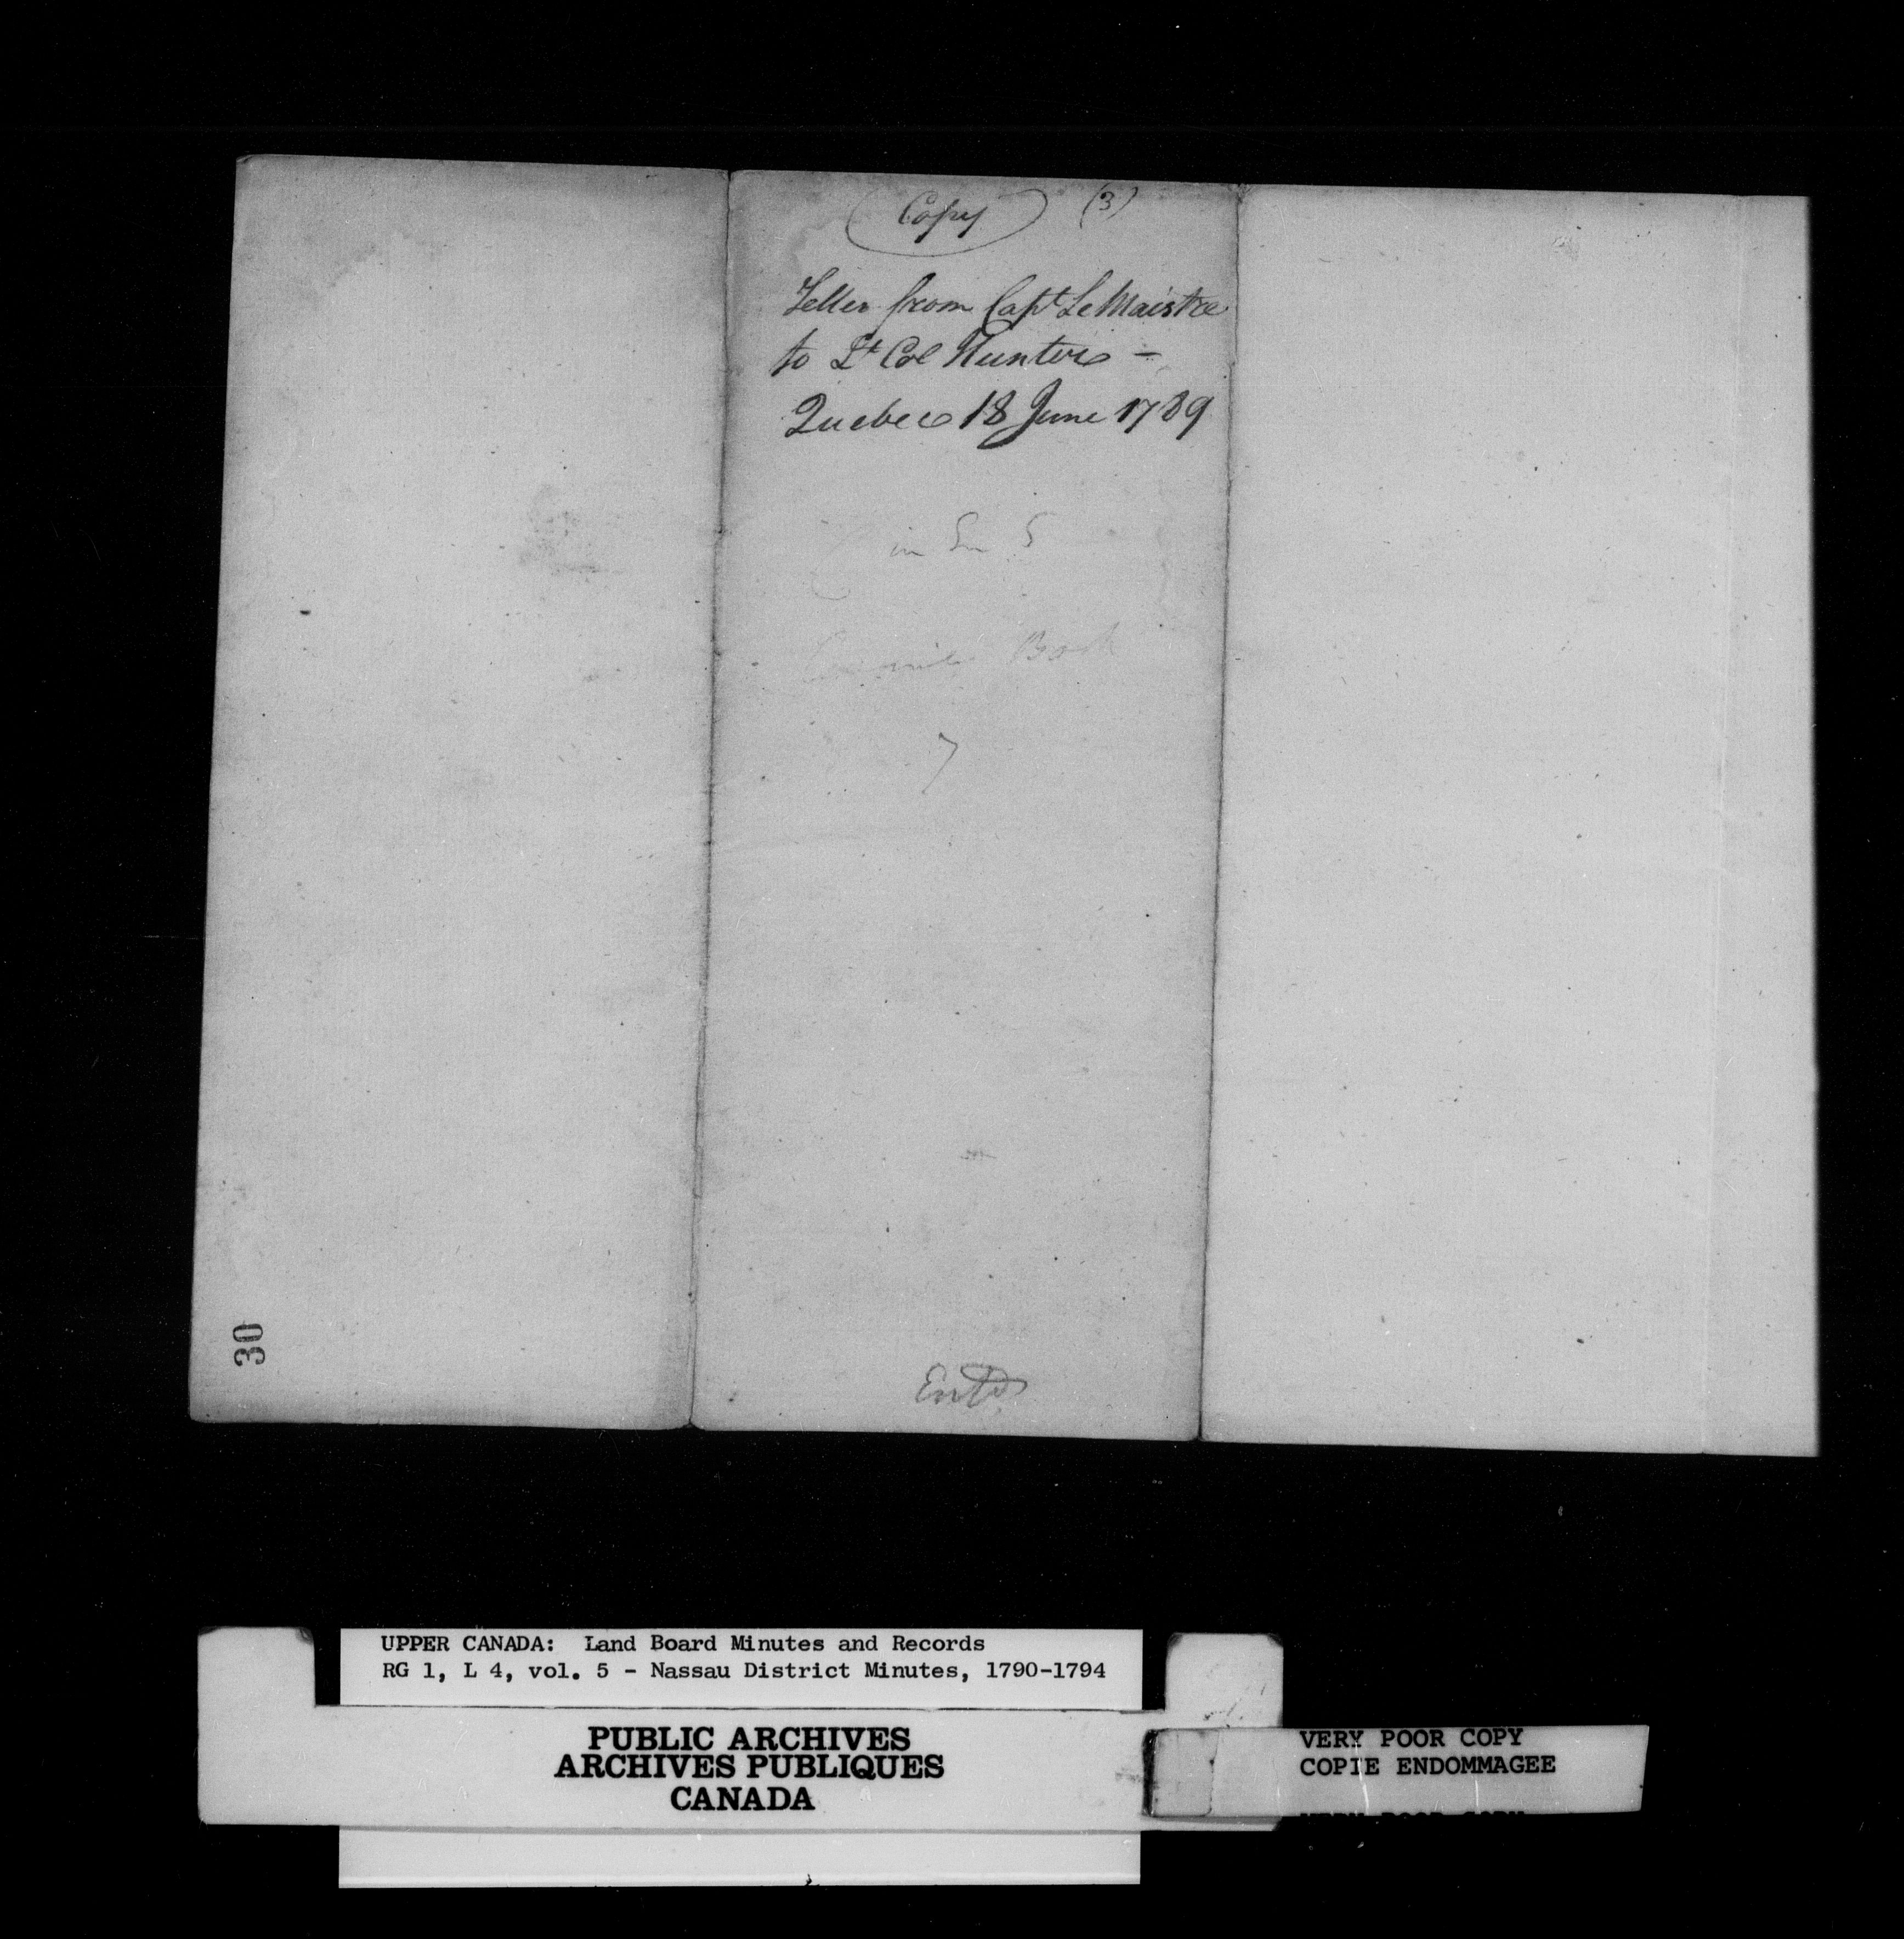 Copy (3)
Letter from Capt Le Maistre
to Lt Col Hunter -
Quebec 18 June 1789
in 5
Book
7
Entd
30
UPPER CANADA: Land Board Minutes and Records
RG 1, L 4, vol. 5 - Nassau District Minutes, 1790-1794
PUBLIC ARCHIVES
ARCHIVES PUBLIQUES
CANADA
VERY POOR COPY
COPIE ENDOMMAGEE
VERY POOR COPY